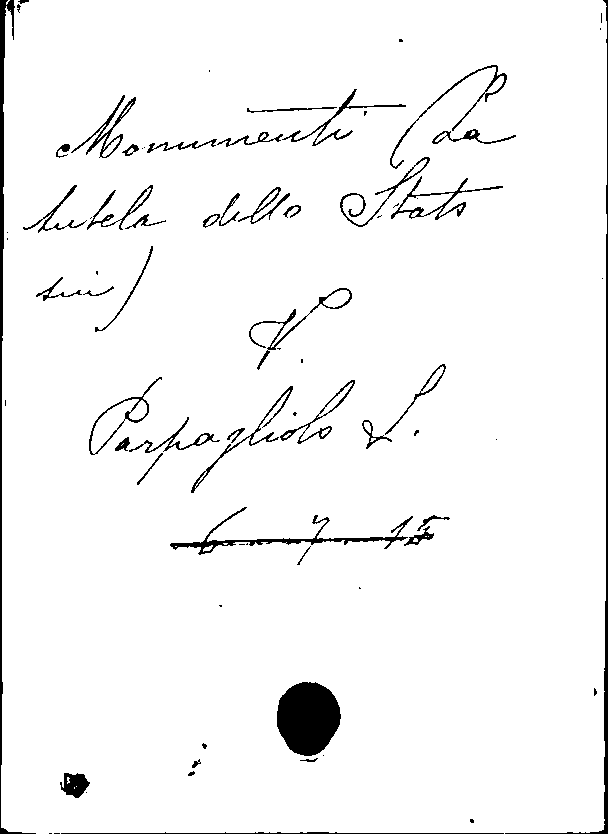 Monumenti (La
tutela dello Stato
sui)
V.
Parpagliolo L.
6 7 15